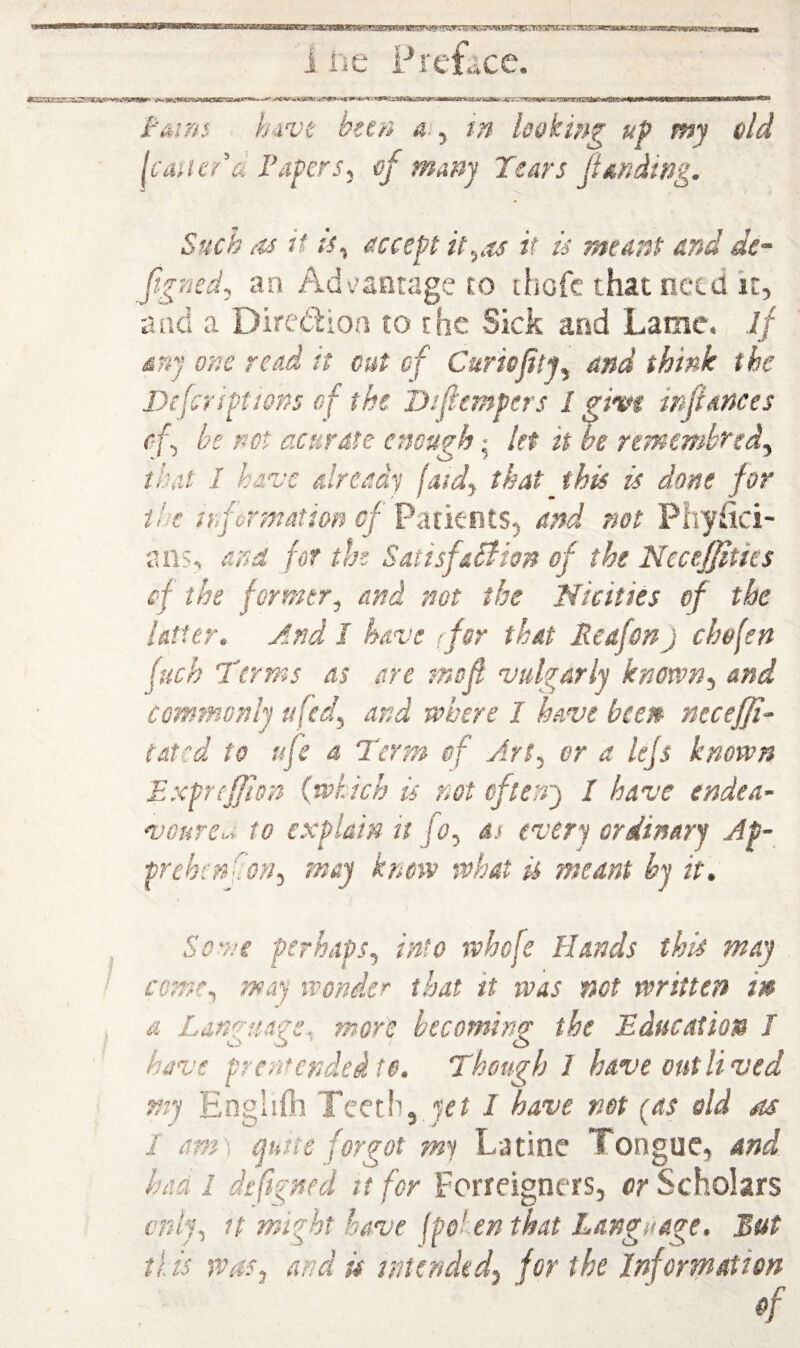 The Preface.
Pains have been at, in looking up my old
ſcatter'd Papers, of many Years ſtanding.
Such as it is, accept it, as it is meant and de-
ſigned, an Advantage to thoſe that need it,
and a Direction to the Sick and Lame. If
any one read it out of Curioſity, and think the
Deſcriptions of the Diſtempers I give inſtances
of, be not acurate enough; let it be remembred,
that I have already ſaid, that this is done for
the information of Patients, and not Phyſici-
ans, and for the Satisfaction of the Neceſſities
of the former, and not the Nicities of the
latter. And I have (for that Reaſon) choſen
ſuch Terms as are moſt vulgarly known, and
commonly uſed, and where I have been neceſſi-
tated to uſe a Term of Art, or a leſs known
Expreſſion (which is not often) I have endea-
voured to explain it ſo, as every ordinary Ap-
prehenſion, may know what is meant by it.
Some perhaps, into whoſe Hands this may
come, may wonder that it was not written in
a Language, more becoming the Education I
have prentended to. Though I have outlived
my Engliſh Teeth, yet I have not (as old as
I am) quite forgot my Latine Tongue, and
had I deſigned it for Forreigners, or Scholars
only, it might have ſpoken that Language. But
this was, and is intended, for the Information
of